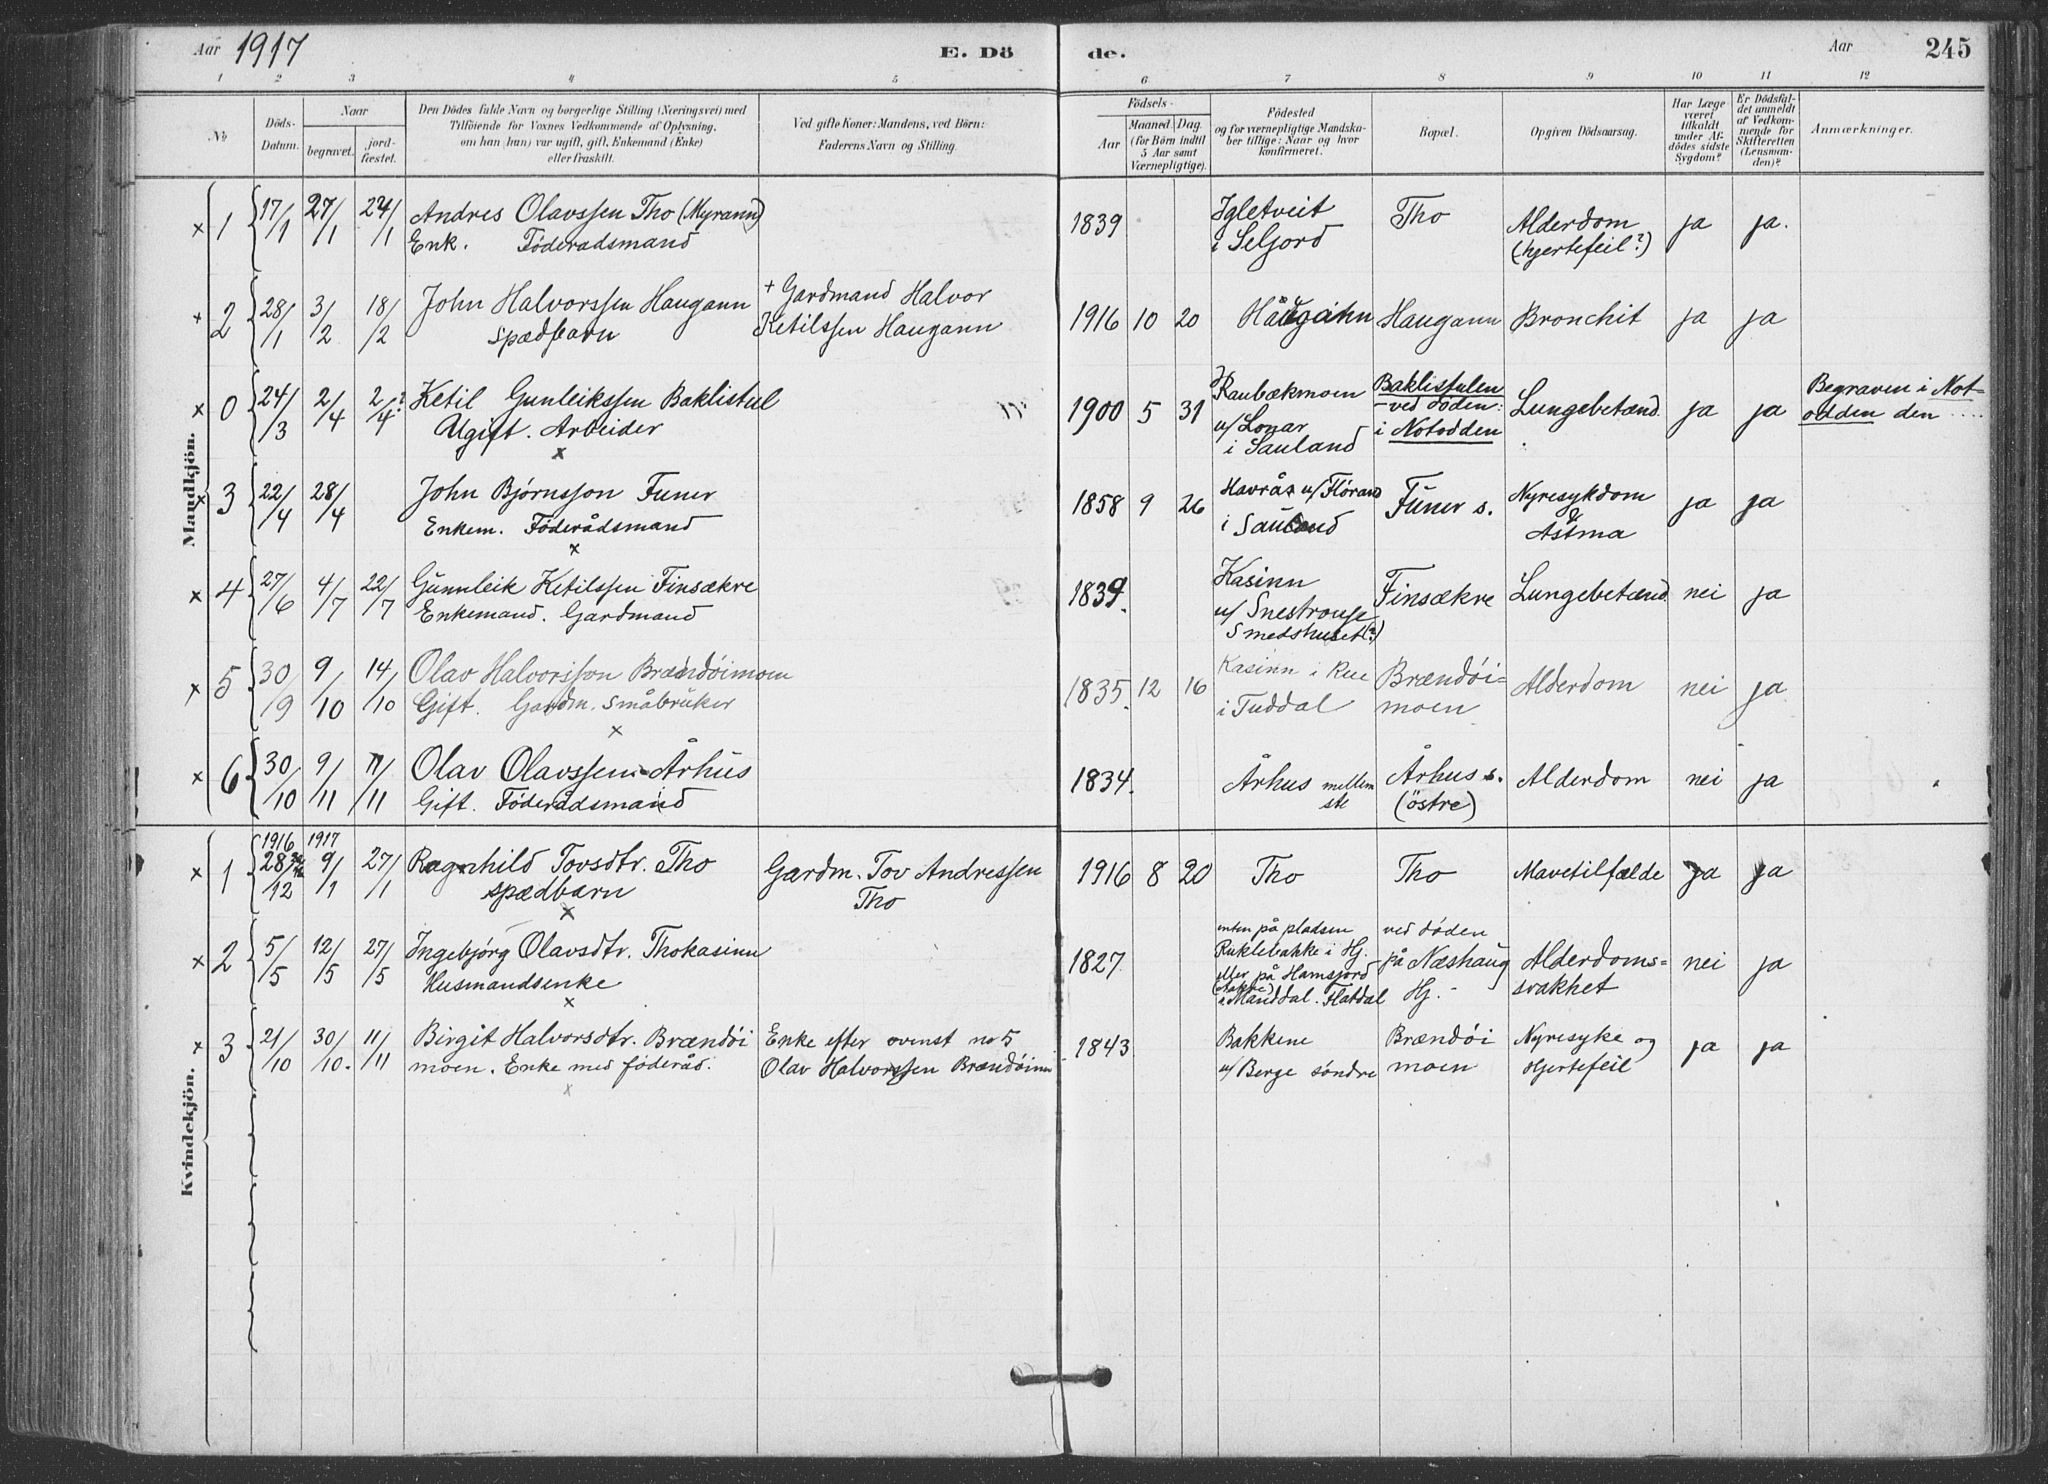 Aar 1917 E. Döde. Aar 245
1 2 3 4 5 6 7 8 9 10 11 12
No Döds-Datum. Naar begravet. jordfæstet. Den Dödes fulde Navn og borgerlige Stilling (Næringsvei) med
Tilföiende for Voxnes Vedkommende af Oplysning,
om han (hun) var ugift, gift, Enkemand (Enke)
eller fraskilt.
Ved gifte Koner: Mandens, ved Börn:
Faderens Navn og Stilling.
Födsels- Aar Maaned. Dag. (for Börn indtil 5 Aar samt Værnepligtige).
Födested
og for værnepligtige Mandskaber tillige: Naar og hvor
konfirmeret.
Bopæl. Opgiven Dödsaarsag.
Har Læge været tilkaldt under Afdödes sidste Sygdom?
Er Dödsfaldet anmeldt af Vedkommende for Skifteretten (Lensmanden)?
Anmærkninger.
Mandkjön.
x 1 17/1 27/1 24/1 Andres Olavssen Tho (Myrann) 1839 Igletveit Tho Alderdom ja ja.
Enk. Föderadsmand i Seljord (hjertefeil?)
+ 2 28/1 3/2 18/2 John Halvorssen Haugann + Gardmand Halvor 1916 10 20 Haugann Bronchit ja ja
spædbarn Ketilssen Haugann
x 0 24/3 2/4 2/4? Ketil Gunleikssen Baklistul 1900 5 31 Raubækmoen Baklistulen Lungebetænd. ja ja Begraven i Not-
Ugift. Arbeider u/ Lonar - ved døden: odden den ....
x i Sauland i Notodden
x 3 22/4 28/4 John Bjørnsson Funer 1858 9 26 Havrås u/ Flórand Funer s. Nyresykdom ja ja
Enkem. Föderådsmand i Sauland & Astma
x
x 4 27/6 4/7 22/7 Gunnleik Ketilssen Finsækre 1839. Kasinn Finsækre Lungebetænd. nei ja
Enkemand. Gardmand u/ Snestrouje
Smedshuset(?)
x 5 30/9 9/10 14/10 Olav Halvorsson Brændóimoen 1835. 12 16 Kasinn i Rue Brændói- Alderdom nei ja
Gift. Gardm. Småbruker i Tuddal moen
x
x 6 30/10 9/11 11/11 Olav Olavssen Århus 1834. Århus mellem Århus s. Alderdom nei ja
Gift. Föderådsmand ste (östre)
Kvindekjön.
1916 1917
x 1 28/12 9/1 27/1 Ragnhild Tovsdtr. Tho Gardm. Tov Andressen 1916 8 20 Tho Tho Mavetilfælde ja ja
spædbarn Tho
x
x 2 5/5 12/5 27/5 Ingebjórg Olavsdtr. Thokasinn 1827 enten på pladsen ved døden Alderdoms= nei ja
Husmandsenke Ruklebakke i Hj. på Næshaug svakhet
x eller på Hamsjord Hj.
i Manddal. Flatdal
x 3 21/10 30/10. 11/11 Birgit Halvorsdtr. Brændói Enke efter ovenst no 5 1843 Bakkene Brændói Nyresyke og ja ja
moen. Enke med föderåd. Olav Halvorssen Brændóimn u/ Berge söndre moen Hjertefeil
x